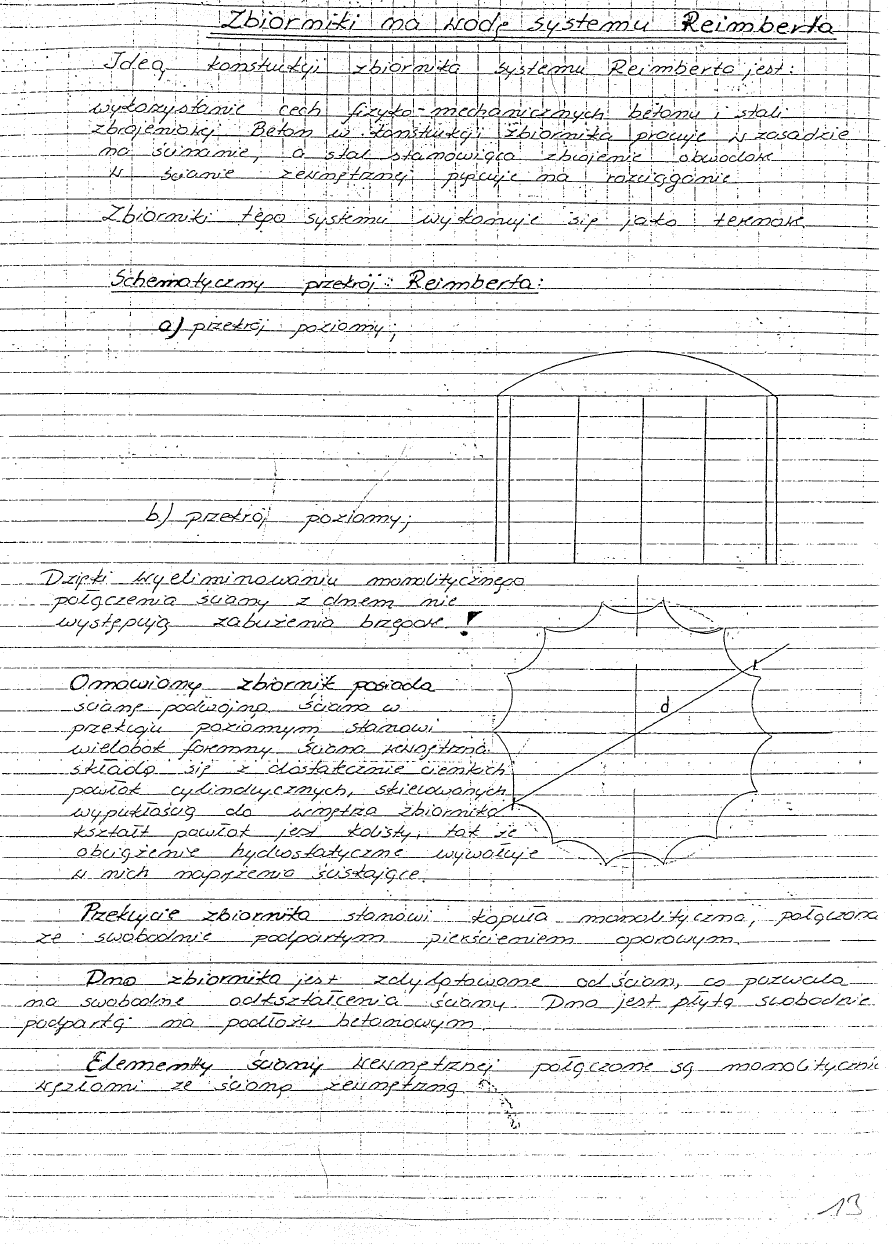 Zbiorniki na wodę systemu Reimberta
Ideą konstukji zbiornika systemu Reimberta jest:
wykozystanie cech fizyko-mechanicznych betonu i stali
zbrojeniowej. Beton w konstukcji zbiornika pracuje w zasadzie
na ścinanie, a stal stanowiąca zbrojenie obwodowe
w ścianie zewnętrznej pracuje na rozciąganie
Zbiorniki tego systemu wykonuje się jako terenowe
Schematyczny przekrój: Reimberta:
a) przekrój poziomy;
b) przekrój poziomy;
Dzięki wyeliminowaniu monolitycznego
połączenia ściany z dnem nie
występują zabużenia brzegowe !
d
Omawiany zbiornik posiada
ścianę podwójną. Ściana w
przekroju poziomym stanowi
wielobok foremny ściana wewnętrzna
składa się z dostatecznie cienkich
powłok cylindrycznych, skierowanych
wypukłością do wnętrza zbiornika
kształt powłok jest kolisty, tak że
obciążenie hydrostatyczne wywołuje
w nich naprężenia ściskające.
Przekrycie zbiornika stanowi kopuła monolityczna, połączona
ze swobodnie podpartym pierścieniem oporowym.
Dno zbiornika jest zdylatowane od ścian, co pozwala
na swobodne odkształcenia ściany Dno jest płytą swobodnie
podpartą na podłożu betonowym.
Elementy ściany wewnętrznej połączone są monolitycznie
węzłami ze ścianą zewnętrzną
13